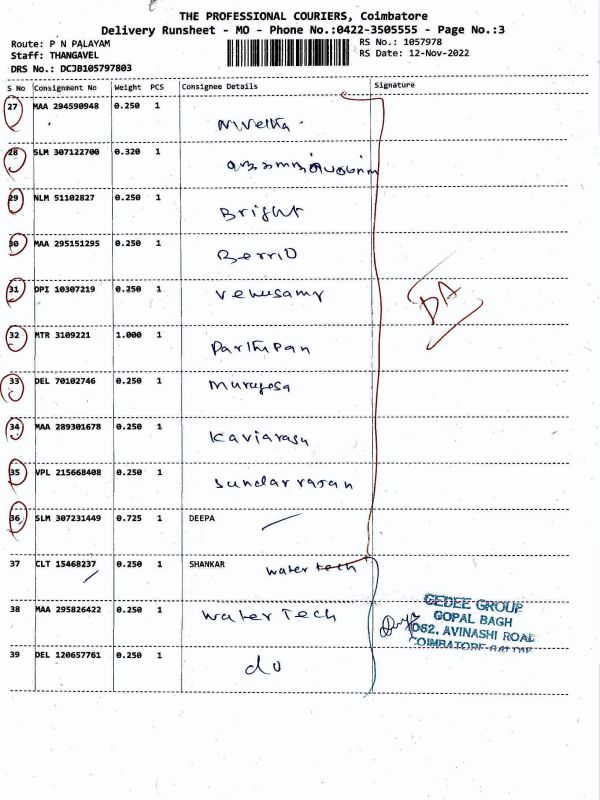 THE PROFESSIONAL COURIERS, Coimbatore
Delivery Runsheet - MO - Phone No.:0422-3505555 - Page No.:3
Route: P N PALAYAM
Staff: THANGAVEL
DRS No.: DCJB105797803
RS No.: 1057978
RS Date: 12-Nov-2022
S No Consignment No Weight PCS Consignee Details Signature
27 MAA 294590948 0.250 1
Nivetha
28 SLM 307122700 0.320 1
29 NLM 51102827 0.250 1
Bright
30 MAA 295151295 0.250 1
31 DPI 10307219 0.250 1
Venusamy
DA
32 MTR 3109221 1.000 1
Parthipan
33 DEL 70102746 0.250 1
Murugesa
34 MAA 289301678 0.250 1
Kaviarasu
35 VPL 215668408 0.250 1
Sundarrajan
36 SLM 307231449 0.725 1 DEEPA
37 CLT 15468237 0.250 1 SHANKAR
water tech
38 MAA 295826422 0.250 1
Water Tech
GEDEE GROUP
GOPAL BAGH
1062, AVINASHI ROAD
39 DEL 120657761 0.250 1
do